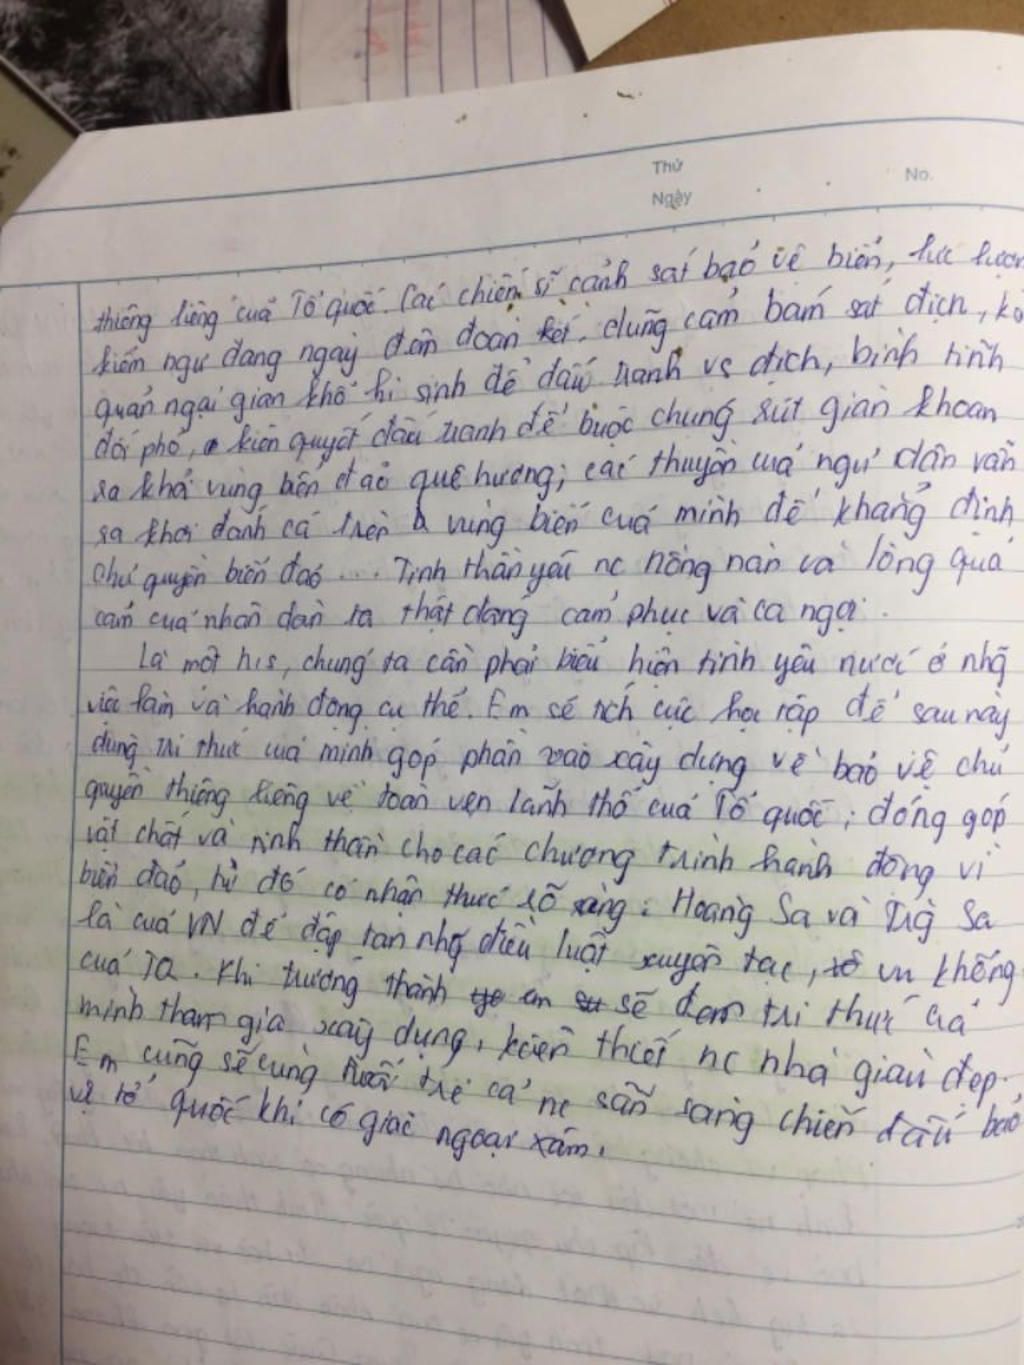 Thứ
No.
Ngày
thiêng liêng của Tổ quốc. Các chiến sĩ cảnh sát bảo vệ biển, lực lượn
kiểm ngư đang ngày đêm đoàn kết, dũng cảm bám sát địch, ko
quản ngại gian khổ hi sinh để đấu tranh vs địch, bình tĩnh
đối phó, kiên quyết đấu tranh để buộc chúng rút giàn khoan
ra khỏi vùng biển đảo quê hương; các thuyền của ngư dân vẫn
ra khơi đánh cá trên vùng biển của mình để khẳng định
chủ quyền biển đảo .... Tinh thần yêu nc nồng nàn và lòng quả
cảm của nhân dân ta thật đáng cảm phục và ca ngợi.
Là một his, chúng ta cần phải biểu hiện tình yêu nước ở nhg
việc làm và hành động cụ thể. Em sẽ tích cực học tập để sau này
dùng tri thức của mình góp phần vào xây dựng về bảo vệ chủ
quyền thiêng liêng về toàn vẹn lãnh thổ của Tổ quốc; đóng góp
vật chất và tinh thần cho các chương trình hành động vì
biển đảo, từ đó có nhận thức rõ ràng: Hoàng Sa và Trg Sa
là của VN để đập tan nhg điều luật xuyên tạc, vu khống
của TQ. Khi trưởng thành em sẽ đem tri thức của
mình tham gia xây dựng, kiến thiết nc nhà giàu đẹp.
Em cũng sẽ cùng tuổi trẻ cả nc sẵn sàng chiến đấu bảo
vệ tổ quốc khi có giặc ngoại xâm.